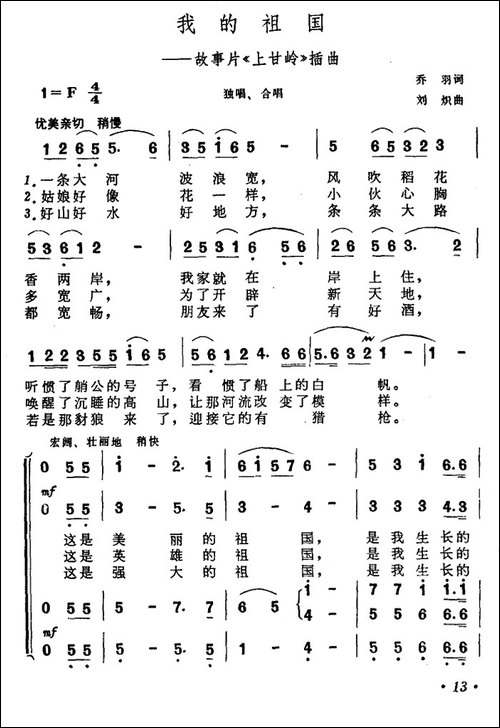 我的祖国
——故事片《上甘岭》插曲
1=F 4/4
独唱、合唱
乔 羽词
刘 炽曲
优美亲切 稍慢
1 2 6 5 5· 6 | 3 5 i 6 5 - | 5 6 5 3 2 3
1.一条大河 波浪宽, 风吹稻花
2.姑娘好像 花一样, 小伙心胸
3.好山好水 好地方, 条条大路
5 3 6 1 2 - | 2 5 3 1 6 5 6 | 1 3 5 6 3· 2
香两岸, 我家就在 岸上住,
多宽广, 为了开辟 新天地,
都宽畅, 朋友来了 有好酒,
1 2 2 2 3 5 5 i 6 5 | 5 6 1 2 4· 6 6 | 5·6 3 2 1 - | 1 -
听惯了艄公的号子,看惯了船上的白帆。
唤醒了沉睡的高山,让那河流改变了模样。
若是那豺狼来了,迎接它的有猎枪。
宏阔、壮丽地 稍快
0 5 5 | i - 2· i | 6 i 5 7 6 - | 5 3 i 6·6
mf
0 5 5 | 3 - 5· 5 | 3 - 4 - | 3 3 3 4·3
这是美丽的祖国,是我生长的
这是英雄的祖国,是我生长的
这是强大的祖国,是我生长的
0 5 5 | 5 - 7· 7 | 6 5 i - 4 - | 7 7 i i·i 5 5 5 6·6
mf
0 5 5 | i - 5· 5
· 13 ·